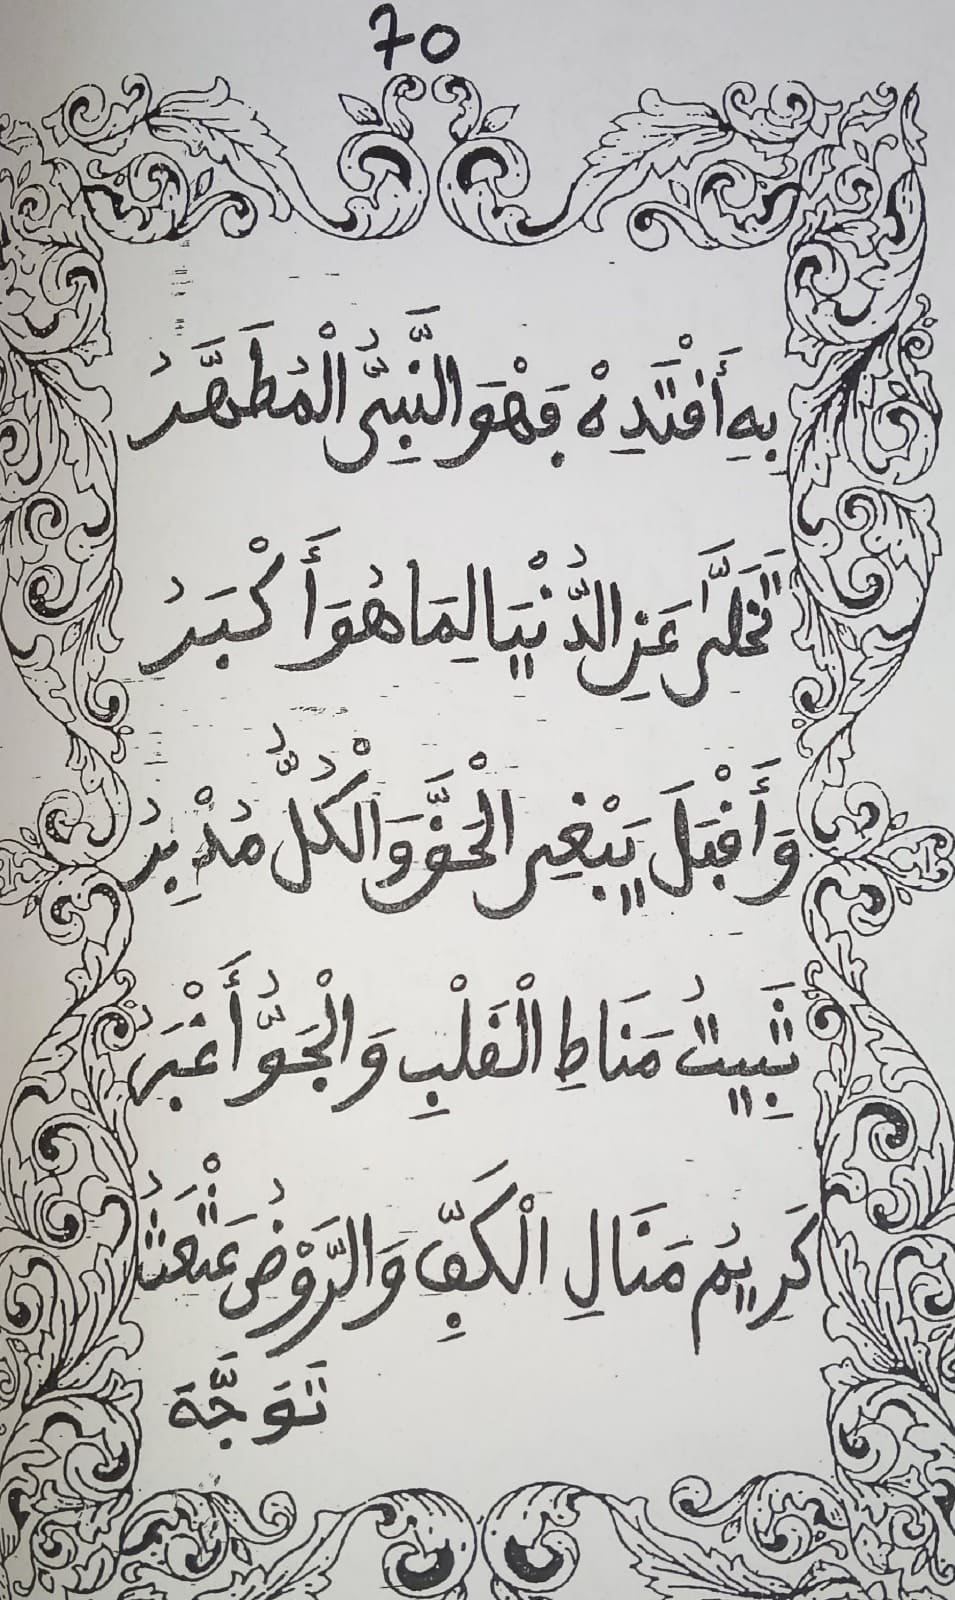 70
بِهِ أَقْتَدِهْ فَهْوَ النَّبِىُّ الْمُطَهَّرُ
تَخَلَّى عَنِ الدُّنْيَا لِمَا هُوَ أَكْبَرُ
وَأَقْبَلَ يَبْغِى الْحَقَّ وَالْكُلُّ مُدْبِرُ
ثَبِيتُ مَنَاطِ الْقَلْبِ وَالْجَوُّ أَغْبَرُ
كَرِيمُ مَنَالِ الْكَفِّ وَالرَّوْضُ عَثْعَثُ
تَوَجَّهَ